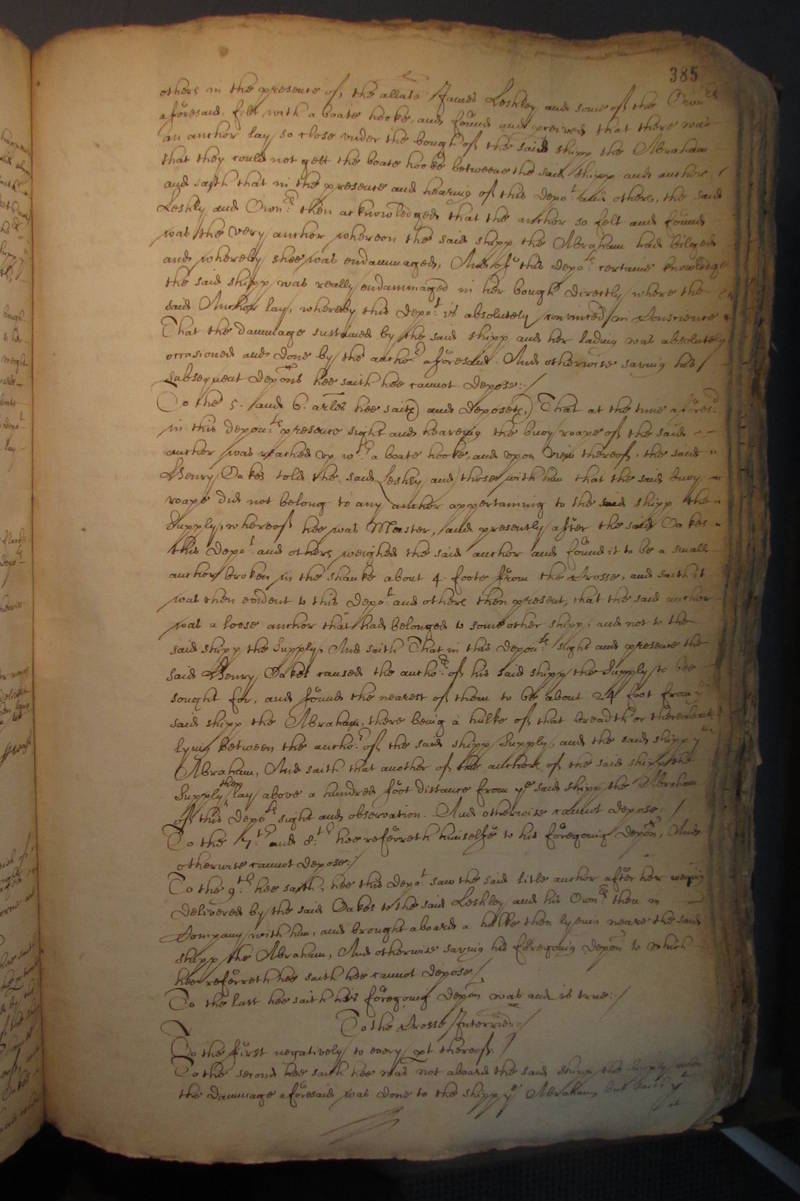 385
others in the presence of the allate James Leshley and some of the Own:rs
aforesaid, felt with a boate hooke, and found and perceived that there was
an anchor lay so close under the bough of the said shipp the Abraham
that they could not gett the boate hooke betweene the said shipp and anchor /
and saith that in the presence and hearing of this depo:t and others, the said
Leshly and Own:rs then acknowledged that the anchor so felt and found
was the very anchor whereon the said shipp the Abraham had bilged
and whereby shee was endammaged, And of this depo:ts certaine knowledge
the said shipp was really endammaged in her bough directly where the
said Anchor lay, whereby this depo:t is absolutely convinced in Conscience
That the dammage sustained by the said shipp and her lading was absolutely
occasioned and done by the ancho:r aforesaid. And otherwise saving his
subsequent deposns hee saith hee cannot depose:/
To the 5. and 6. arles hee saith and deposeth, That at the time afores:d
in this depon:ts presence sight and heareing the buoy roape of the said
anchor was reached up w:th a boate hooke, and upon view thereof, the said
Henry Oakes told the said Leshly and those with him that the said buoy
roape did not belong to any anchor appertaining to the said shipp the
Supply, whereof hee was Master, and presently after the said Oakes
this depo:t and others weighed the said anchor and found it to be a small
anchor broken in the shanke about 4 foote from the Crosse, and saith it
was then evident to this depo:t and others then present, that the said anchor
was a loose anchor that had belonged to some other shipp, and not to the
said shipp the Supply, And saith That in this depon:ts sight and presence the
said Henry Oakes caused the ancho:rs of his said shipp the Supply to bee
sought for, and found the nearest of them to be about 24 foot from ye
said shipp the Abraham, there being a hulke of that breadth or thereabouts
lying between the ancho:r of the said shipp Supply, and the said shipp ye
Abraham, And saith that another of the anchors of the said shipp the
Supply then lay above a hundred foot distance from ye said shipp the Abraham
of this depo:ts sight and observation. And otherwise cannot depose:/
To the 7:th and 8:th hee referreth himselfe to his foregoing deposn, And
otherwise cannot depose:/
To the 9:th hee saith, hee this depo:t saw the said little anchor after her weighing
delivered by the said Oakes to the said Leshley and his Own:rs then in
Company with him, and brought aboard a hulke then lyeing neare the said
shipp the Abraham, And otherwise saving his foregoing deposn to which
hee referreth hee saith hee cannot depose/
To the last hee saith his foregoing deposn was and is true:/
To the Crosse Interries:/
To the first negatively to every pt thereof. /
To the second hee saith hee was not aboard the said shipp the Supply when
the dammage aforesaid was done to the shipp ye Abraham, but